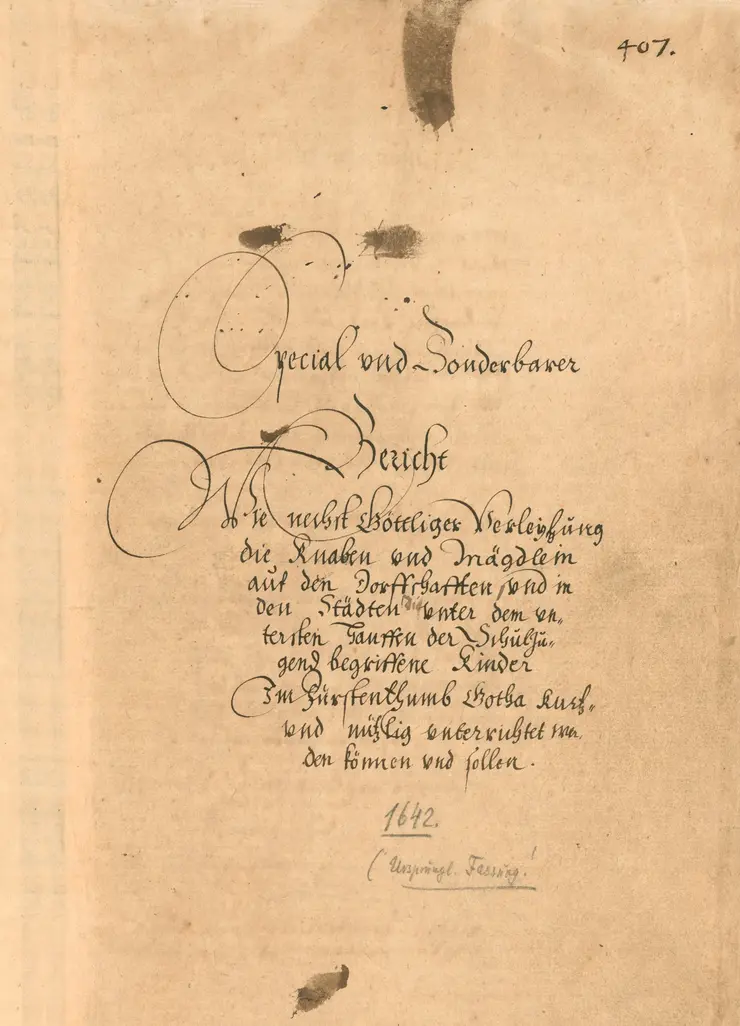 407.
Special vnd Sonderbarer
Bericht
Wie nechst Göttliger Verleyhung
die Knaben vnd Mägdlein
auf den Dorffschafften, vnd in
den Städten die vnter dem vn-
tersten Hauffen der Schuelju-
gend begriffene Kinder
Im Fürstenthumb Gotha Kurtz-
vnd nützlig vnterrichtet wer
den können vnd sollen.
1642.
(Ursprüngl. Fassung!